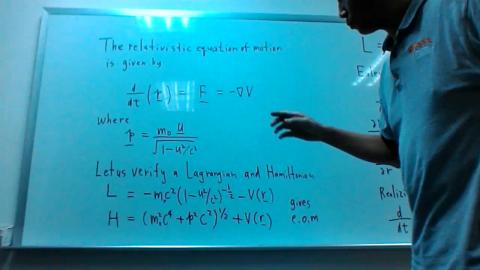 The relativistic equation of motion
is given by
d/dt (p) = F = -∇V
where
p = m₀ u / √(1-u²/c²)
Let us verify a Lagrangian and Hamiltonian
L = -m₀c²(1-u²/c²)^-1/2 - V(r) gives
H = (m₀²c⁴ + p²c²)^1/2 + V(r) e.o.m
L =
Realizi
d
dt